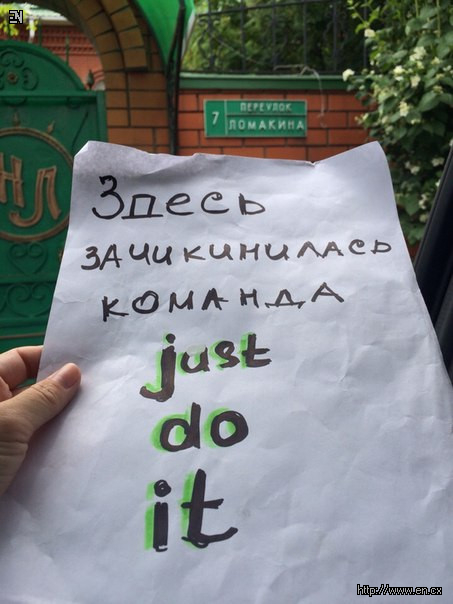 EN
7
ПЕРЕУЛОК
ЛОМАКИНА
НЛ
Здесь
зачикинилась
команда
just
do
it
http://www.en.cx